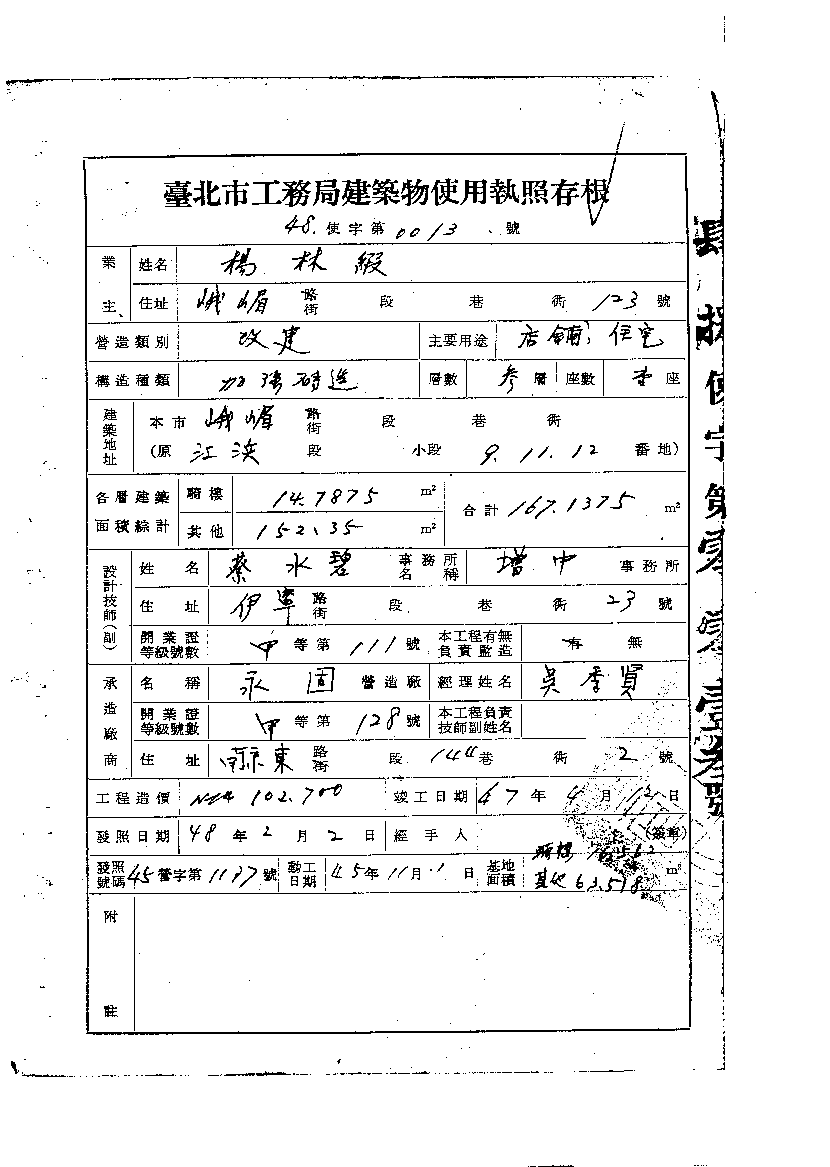 臺北市工務局建築物使用執照存根
48.使字第0013號
業主 姓名 楊林緞
住址 峨嵋 路街 段 巷 衖 123 號
營造類別 改建 主要用途 店鋪、住宅
構造種類 加強磚造 層數 參層 座數 壹座
建築地址 本市 峨嵋 路街 段 巷 衖
(原 江浜 段 小段 9.11.12 番地)
各層建築面積綜計 騎樓 14.7875 m² 合計 167.1375 m²
其他 152.35 m²
設計技師(副) 姓名 蔡水碧 事務所名稱 增中 事務所
住址 伊寧 路街 段 巷 衖 23 號
開業證等級號數 甲等第111號 本工程有無負責監造 有 無
承造廠商 名稱 永固 營造廠 經理姓名 吳季賢
開業證等級號數 甲等第128號 本工程負責技師副姓名
住址 南京東 路街 段 144巷 衖 2 號
工程造價 102.700 竣工日期 47年4月12日
發照日期 48年2月2日 經手人 (簽章)
發照號碼 45營字第1137號 動工日期 45年11月1日 基地面積 騎樓 其他 63.518 m²
附註
肆捌使字第零零壹參號